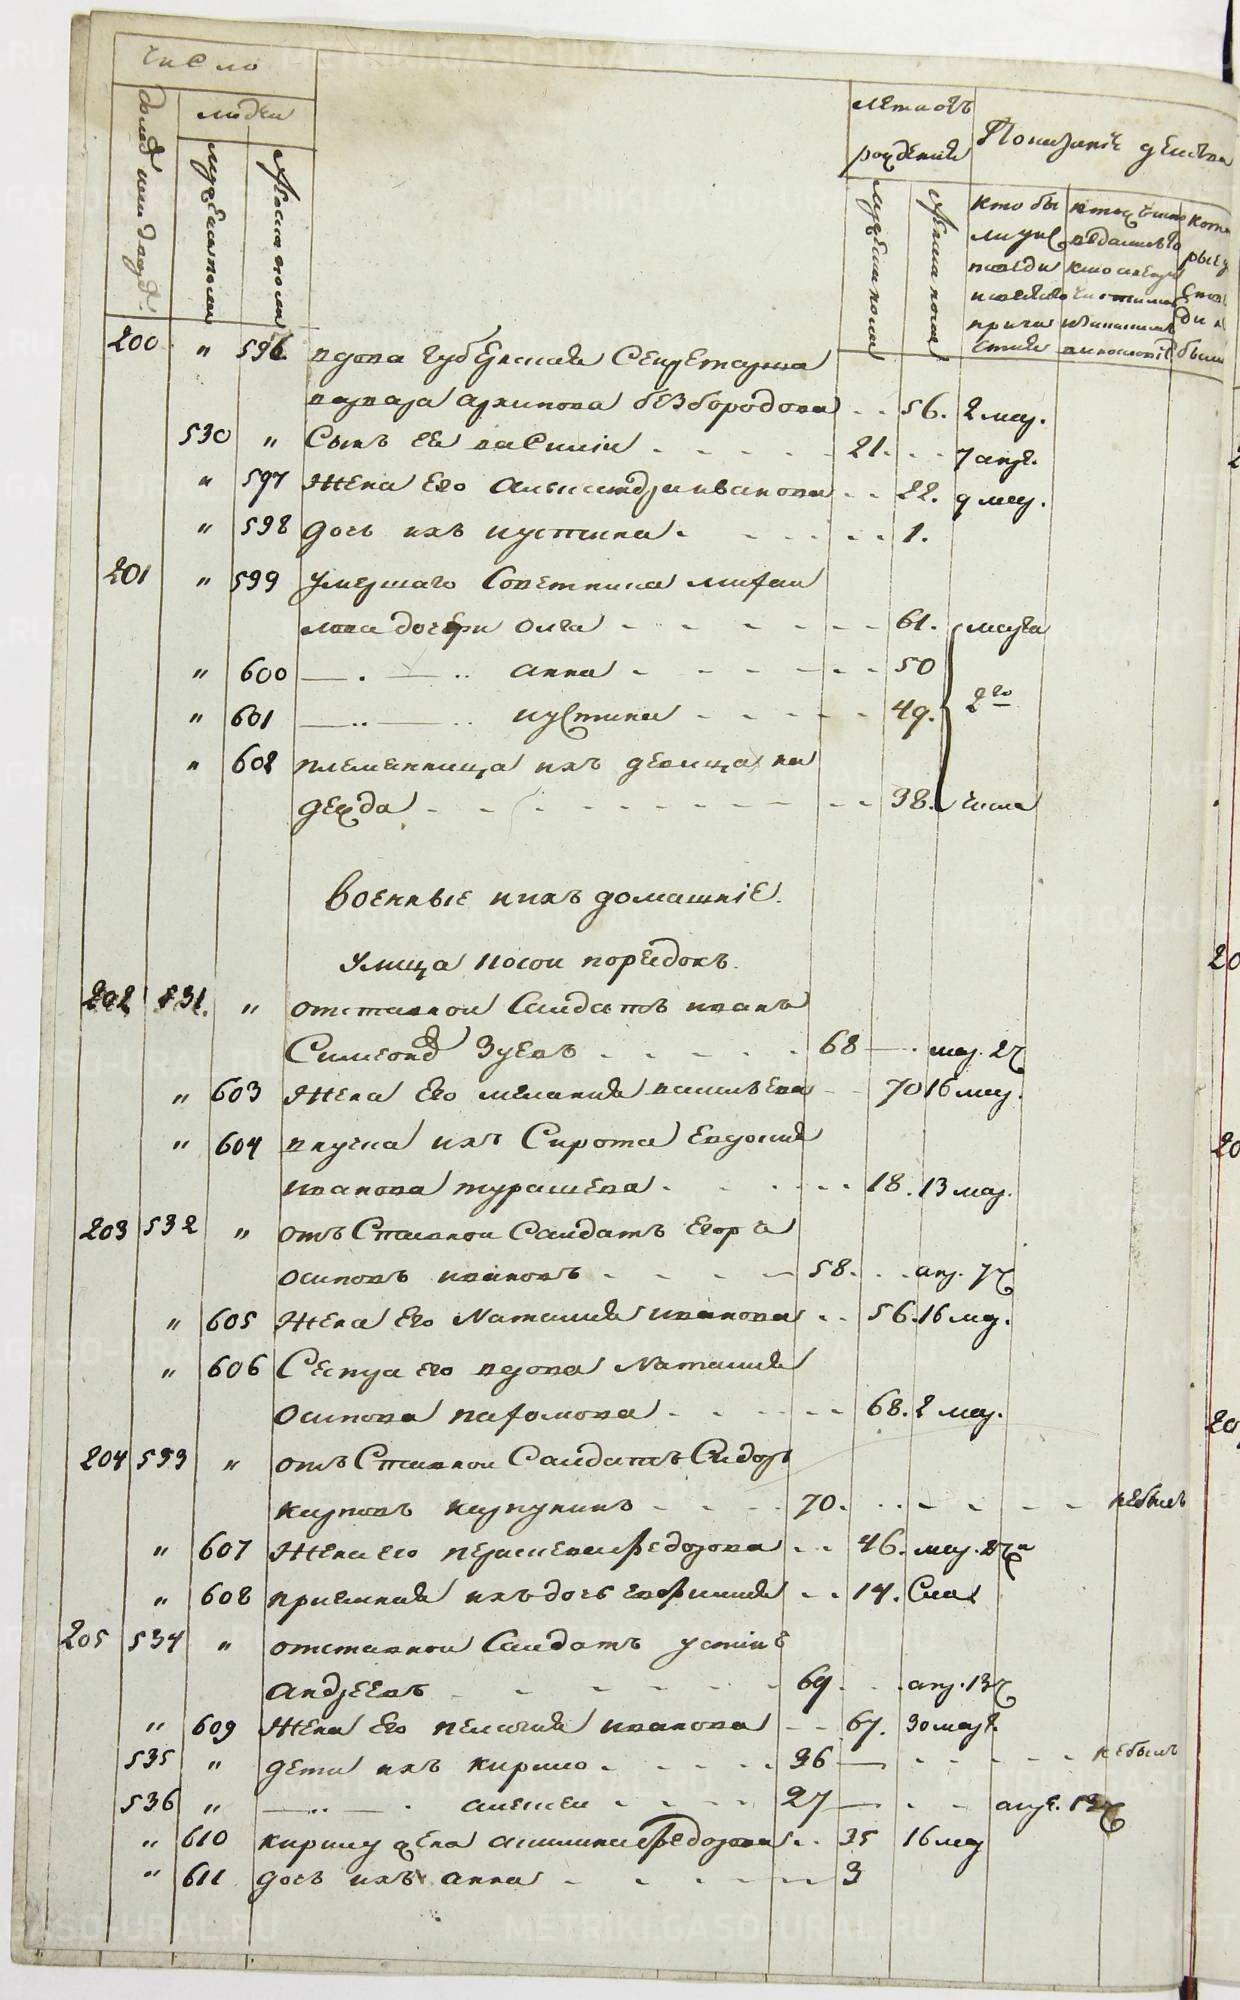 число
людей
домовъ или дворовъ
мужеска пола
женска пола
летъ отъ
рождения
мужеска пола
женска пола
Показание действа
кто бы
ли у ис
поведи
и святаго
прича
стия
200 " 596 вдова губернская Секретарша
варвара архипова безбородова - - 56. 2 мар.
530 " Сынъ ея василии - - - - - 21. - - 7 апре.
" 597 жена его александра иванова - - 22. 9 мар.
" 598 дочь ихъ иустина - - - - - 1.
201 " 599 умершаго Советника михаи
лова дочери олга - - - - - - 61. марта
" 600 — . — .. анна - - - - - - 50
" 601 — .. — .. иустина - - - - - 49. 2го
" 602 племянница ихъ девица на
дежда - - - - - - - - - 38. числа
Военные и ихъ домашнiе.
Улица косои порядокъ.
202 531. " отставнои Салдатъ иванъ
Симеоновъ Зуевъ - - - - - 68 — - мар. 2ч
" 603 жена его мелания васильева - - 70 16 мар.
" 604 внучка ихъ Сирота Евдокия
иванова мурашева - - - - - 18. 13 мар.
203 532 " отъСтавнои Салдатъ Егоръ
осиповъ ивановъ - - - - 58. - - апр. 7ч
" 605 жена его Наталия иванова - - 56. 16 мар.
" 606 Сестра его вдова Наталия
осипова пахомова - - - - - 68. 2 мар.
204 533 " отъСтавнои Салдатъ Сидоръ
карповъ - - - - 70. - - - - - - небылъ
" 607 жена его федорова - - 46. мар.
" 608 приемная ихъ дочь евфимия - - 14.
205 534 " отставнои Салдатъ устинъ
андреевъ - - - - - - 69 - - апр. 13ч
" 609 жена его пелагия иванова - - 67. 30 мар.
535 " дети ихъ кирило - - - - - 36 — - - - - - небылъ
536 " — .. — . алексеи - - - - 27 — - - апре.
" 610 кирилу жена акилина федорова - - 35 16 мар
" 611 дочь ихъ анна - - - - - - 3
METRIKI.GASO-URAL.RU